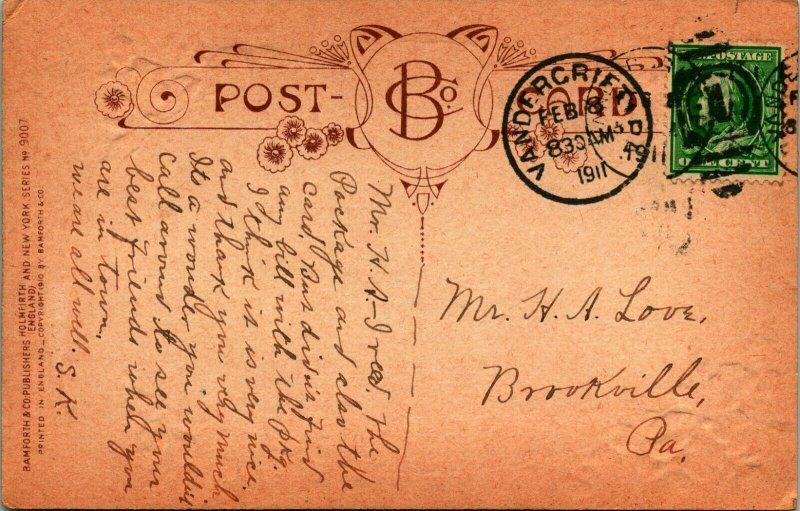 POST-
B Co.
CARD
VANDERGRIFT
FEB 8
830AM
1911
1911
POSTAGE
Mr. H. A. Love,
Brookville,
Pa.
Mr. H. A- I rec'd. the
Package and also the
card, but didn't find
any bill with the pkg.
I think it is very nice
and thank you very much
Its a wonder you wouldn't
call around to see your
best friends when you
are in town.
we are all well. S. K.
BAMFORTH & CO. PUBLISHERS HOLMFIRTH AND NEW YORK SERIES No 9007
(ENGLAND)
PRINTED IN ENGLAND - COPYRIGHT 1910 BY BAMFORTH & CO.